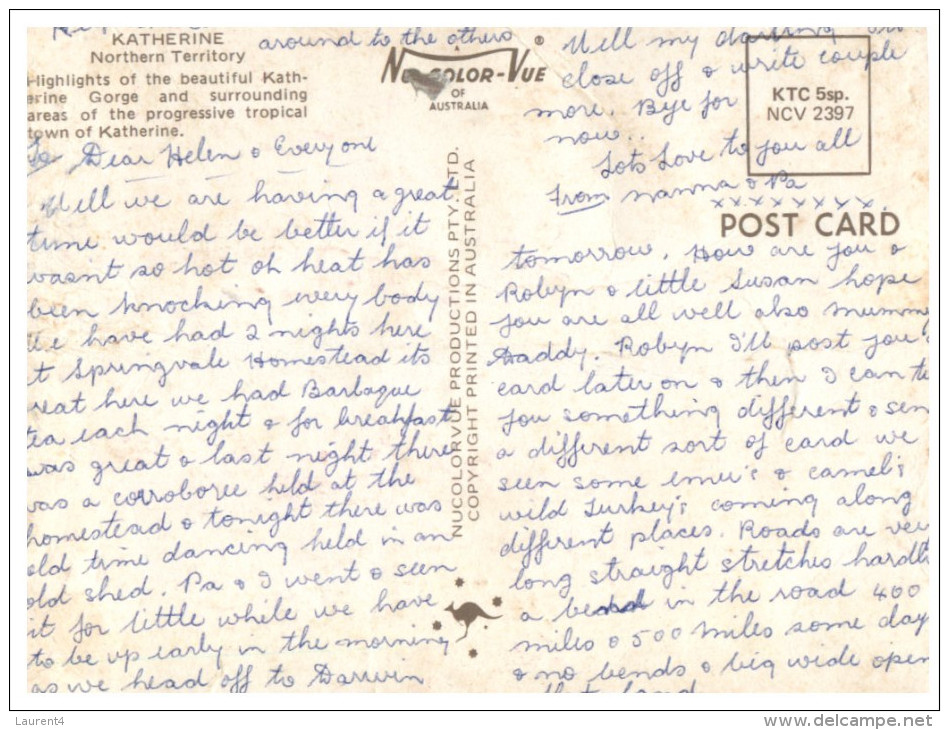 KATHERINE
Northern Territory
Highlights of the beautiful Kath-
erine Gorge and surrounding
areas of the progressive tropical
town of Katherine.
To Dear Helen & Everyone
Well we are having a great
time would be better if it
wasnt so hot oh heat has
been knocking every body
We have had 2 nights here
at Springvale Homestead its
reat here we had Barbaque
tea each night & for breakfast
was great & last night there
was a corroboree held at the
homestead & tonight there was
old time dancing held in an
old shed. Pa & I went & seen
it for little while we have
to be up early in the morning
as we head off to Darwin
tomorrow. How are you &
Robyn & little Susan hope
you are all well also mummy
& daddy. Robyn I'll post you
card later on & then I can te
you something different & sen
a different sort of card we
seen some emu's & camel's
wild Turkey's coming along
different places. Roads are very
long straight stretches hardly
a bend in the road 400
miles & 500 miles some day
& no bends & big wide open
around to the others
Well my darling
close off & write couple
more. Bye for
now..
Lots Love to you all
From nanna & Pa
xxxxxxxx
A
NUCOLOR-VUE ®
OF
AUSTRALIA
KTC 5sp.
NCV 2397
POST CARD
NUCOLORVUE PRODUCTIONS PTY. LTD.
COPYRIGHT PRINTED IN AUSTRALIA
Laurent4
www.delcampe.net